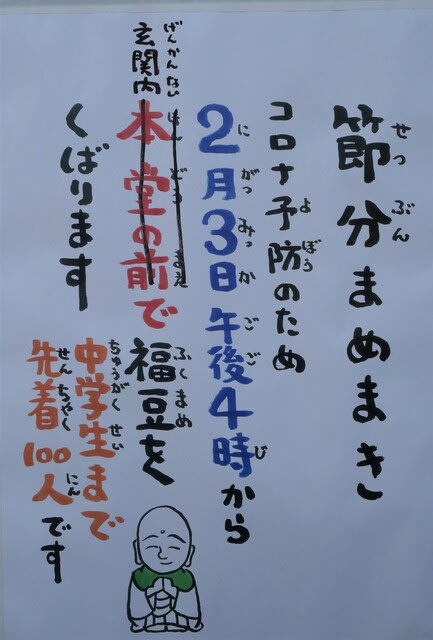 節分まめまき
せつぶん
コロナ予防のため
よぼう
2月3日午後4時から
にがつみっかごごじ
玄関内
げんかんない
本堂の前で福豆を
ほんどうまえふくまめ
くばります
中学生まで
ちゅうがくせい
先着100人です
せんちゃくにん